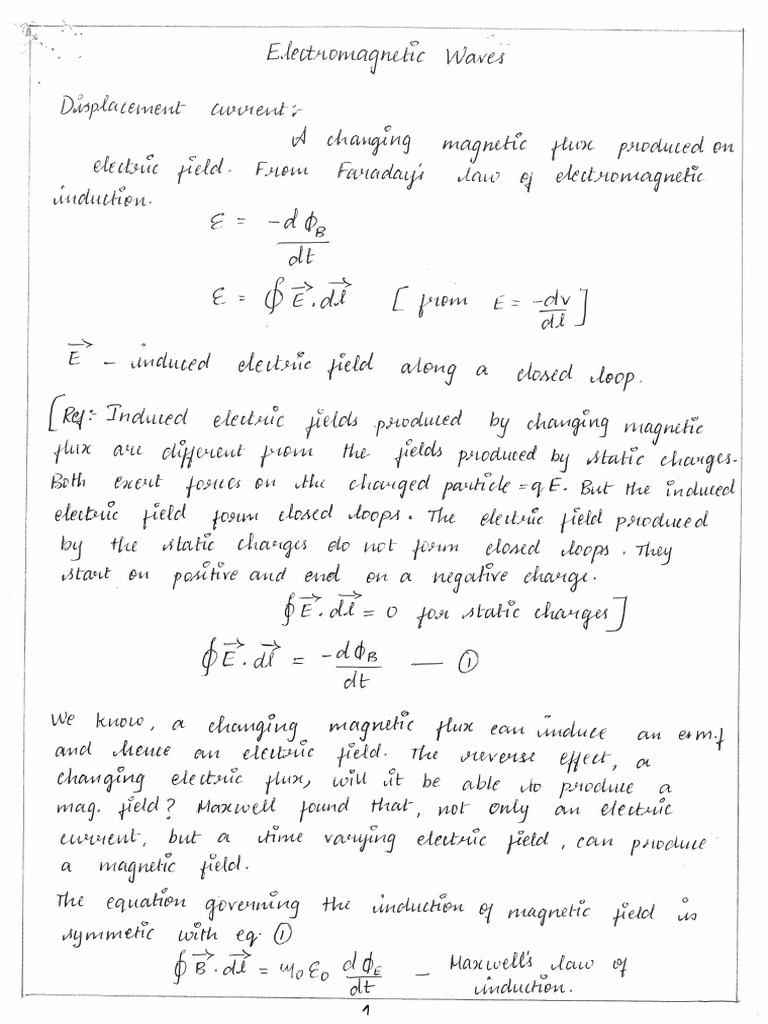 Electromagnetic Waves
Displacement current:-
A changing magnetic flux produced on
electric field. From Faraday's law of electromagnetic
induction.
ε = -dϕ_B/dt
ε = ∮E⃗.dl⃗ [from E = -dv/dl]
E⃗ - induced electric field along a closed loop.
[Ref:- Induced electric fields produced by changing magnetic
flux are different from the fields produced by static charges.
Both exert forces on the charged particle = qE. But the induced
electric field form closed loops. The electric field produced
by the static charges do not form closed loops. They
start on positive and end on a negative charge.
∮E⃗.dl⃗ = 0 for static charges]
∮E⃗.dl⃗ = -dϕ_B/dt — ①
We know, a changing magnetic flux can induce an e.m.f
and hence an electric field. The reverse effect, a
changing electric flux, will it be able to produce a
mag. field? Maxwell found that, not only an electric
current, but a time varying electric field, can produce
a magnetic field.
The equation governing the induction of magnetic field is
symmetic with eq. ①
∮B⃗.dl⃗ = μ₀ε₀ dϕ_E/dt - Maxwell's law of
induction.
1